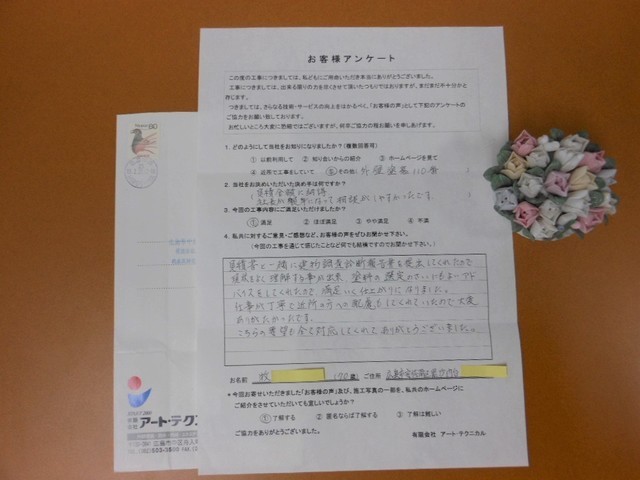 お客様アンケート
この度の工事につきましては、私どもにご用命いただき本当にありがとうございました。
工事につきましては、出来る限りの力を尽くさせて頂いたつもりではおりますが、まだまだ不十分かと
存じます。
つきましては、さらなる技術・サービスの向上をはかるべく、「お客様の声」として下記のアンケートの
ご協力をお願い致しております。
お忙しいところ大変に恐縮ではございますが、何卒ご協力の程お願いを申しあげます。
1. どのようにして当社をお知りになりましたか？（複数回答可）
① 以前利用して ② 知り合いからの紹介 ③ ホームページを見て
④ 近所で工事をしていて ⑤ その他( 外壁塗装110番 )
2. 当社をお決めいただいた決め手は何ですか？
見積金額に納得
社長が親身になって相談がしやすかったです。
3. 今回の工事内容にご満足いただけましたか？
① 満足 ② ほぼ満足 ③ やや満足 ④ 不満
4. 私共に対するご意見・ご感想など、お客様の声をぜひお聞かせ下さい。
（今回の工事を通じて感じたことなど何でも結構ですのでお聞かせ下さい。）
見積書と一緒に建物調査診断報告書を提出してくれたので
現状をよく理解する事が出来、塗料の選定のさいにもよいアド
バイスをしてくれたので満足いく仕上がりになりました。
仕事が丁寧で近所の方への配慮もしてくれていたので大変
ありがたかったです。
こちらの要望も全て対応してくれてありがとうございました。
お名前 牧 (70歳) ご住所
＊今回お寄せいただきました「お客様の声」及び、施工写真の一部を、私共のホームページに
ご紹介をさせていただいても宜しいでしょうか？
① 了解する ② 匿名ならば了解する ③ 了解は難しい
ご協力をありがとうございました。
有限会社 アート・テクニカル
60
有限会社 アート・テクニ